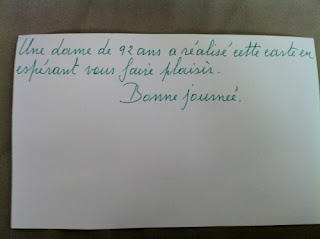 Une dame de 92 ans a réalisé cette carte en
espérant vous faire plaisir.
Bonne journeé.